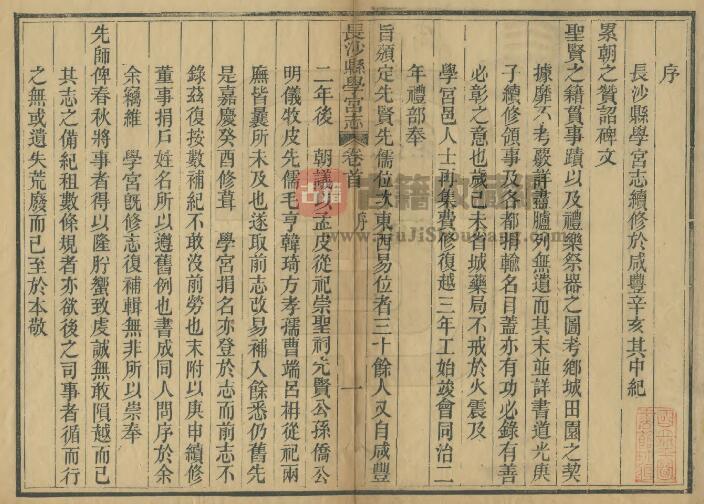 序
長沙縣學宮志續修於咸豐辛亥其中紀
累朝之贊詔碑文
聖賢之籍貫事蹟以及禮樂祭器之圖考鄉城田園之契
據靡不考覈詳盡臚列無遺而其末並詳書道光庚
子續修領事及各都捐輸名目蓋亦有功必錄有善
必彰之意也歲己未省城藥局不戒於火震及
學宮邑人士再集費修復越三年工始竣會同治二
年禮部奉
長沙縣學宮志 卷首 序 一
旨頒定先賢先儒位次東西易位者三十餘人又自咸豐
二年後 朝議以孟皮從祀崇聖祠先賢公孫僑公
明儀牧皮先儒毛亨韓琦方孝孺曹端呂枏從祀兩
廡皆曩所未及也遂取前志改易補入餘悉仍舊先
是嘉慶癸酉修葺 學宮捐名亦登於志而前志不
錄茲復按數補紀不敢沒前勞也末附以庚申續修
董事捐戶姓名所以遵舊例也書成同人問序於余
余竊維 學宮旣修志復補輯無非所以崇奉
先師俾春秋將事者得以隆肸蠁致虔誠無敢隕越而已
其志之備紀租數條規者亦欲後之司事者循而行
之無或遺失荒廢而已至於本敬
古籍
www.GuJiShouBang.com